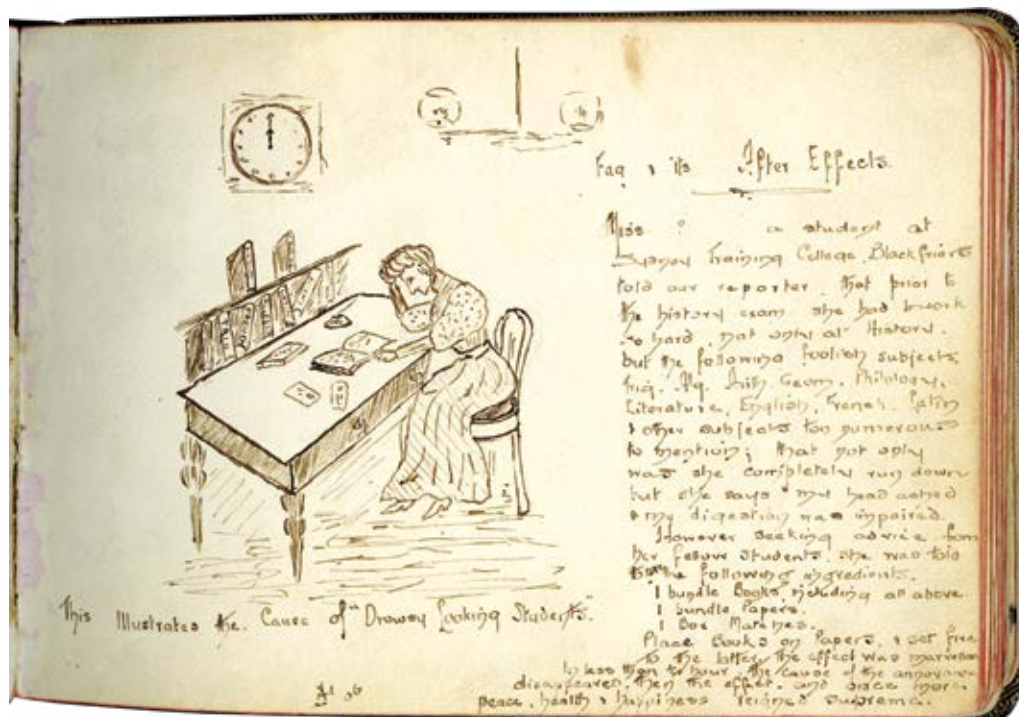 Fag & its After Effects.
Miss ? a student at
Training College, Blackfriars
told our reporter that prior to
the history exam she had to work
so hard, not only at History,
but the following foolish subjects,
Geom. Philology,
Literature, English, French, Latin
& other subjects too numerous
to mention; that not only
was she completely run down
but she says "my head ached
& my digestion was impaired.
However seeking advice from
her fellow students, she was told
the following ingredients.
1 bundle Books, including all above
1 bundle Papers.
1 Box Matches.
Place Books on Papers, & set fire
to the latter, the effect was marvellous
In less than hour, the cause of the annoyance
disappeared, then the effect, and once more
peace, health & happiness reigned supreme.
This Illustrates the Cause of "Drowsy Looking Students."